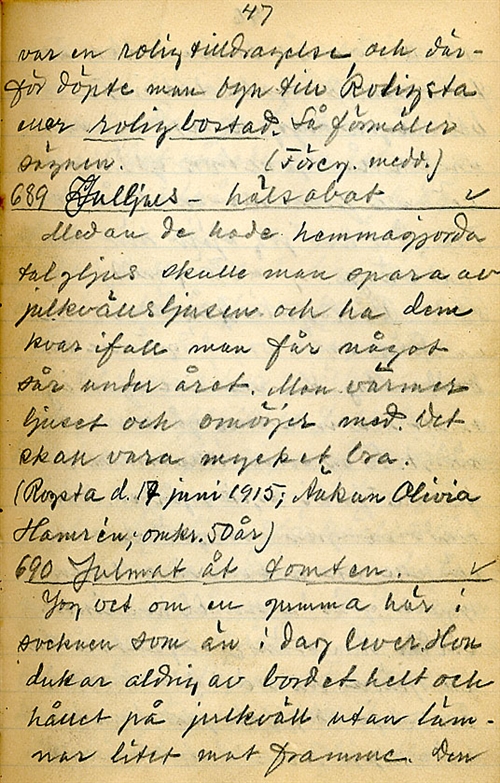 47
var en rolig tilldragelse, och där-
för döpte man byn till Roligsta
eller roligbostad. Så förmäler
sägnen. (Föreg. medd.)
689 Julljus - hälsobot ✓
Medan de hade hemmagjorda
talgljus skulle man spara av
julkvällsljusen och ha dem
kvar ifall man får något
sår under året. Man värmer
ljuset och omörjer med. Det
skall vara mycket bra.
(Rogsta d. 17 juni 1915; Änkan Olivia
Hamrén; omkr. 50 år)
690 Julmat åt tomten. ✓
Jag vet om en gumma här i
socknen som än i dag lever. Hon
dukar aldrig av bordet helt och
hållet på julkväll utan läm-
nar litet mat framme. Den